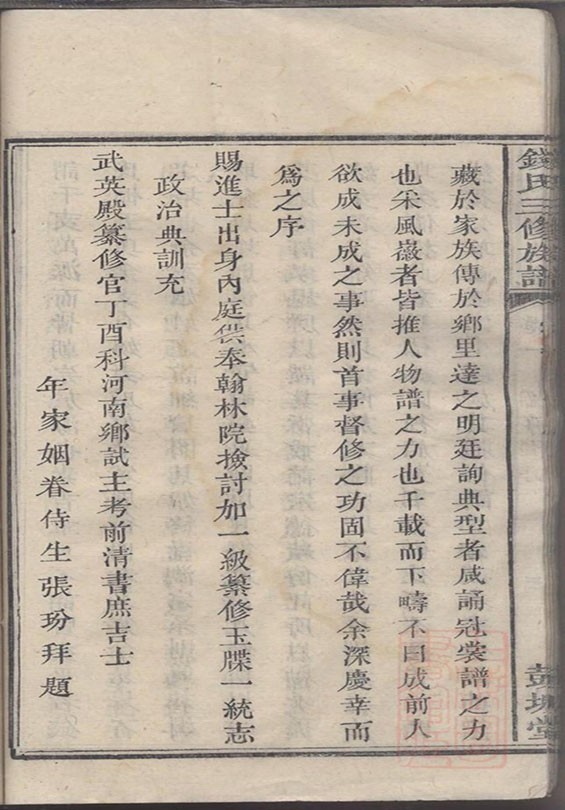 錢氏三修族譜
彭城堂
藏於家族傳於鄉里達之明廷詢典型者咸誦冠裳譜之力
也采風巖者皆推人物譜之力也千載而下疇不曰成前人
欲成未成之事然則首事督修之功固不偉哉余深慶幸而
為之序
賜進士出身內庭供奉翰林院撿討加一級纂修玉牒一統志
政治典訓充
武英殿纂修官丁酉科河南鄉試主考前清書庶吉士
年家姻眷侍生張玢拜題